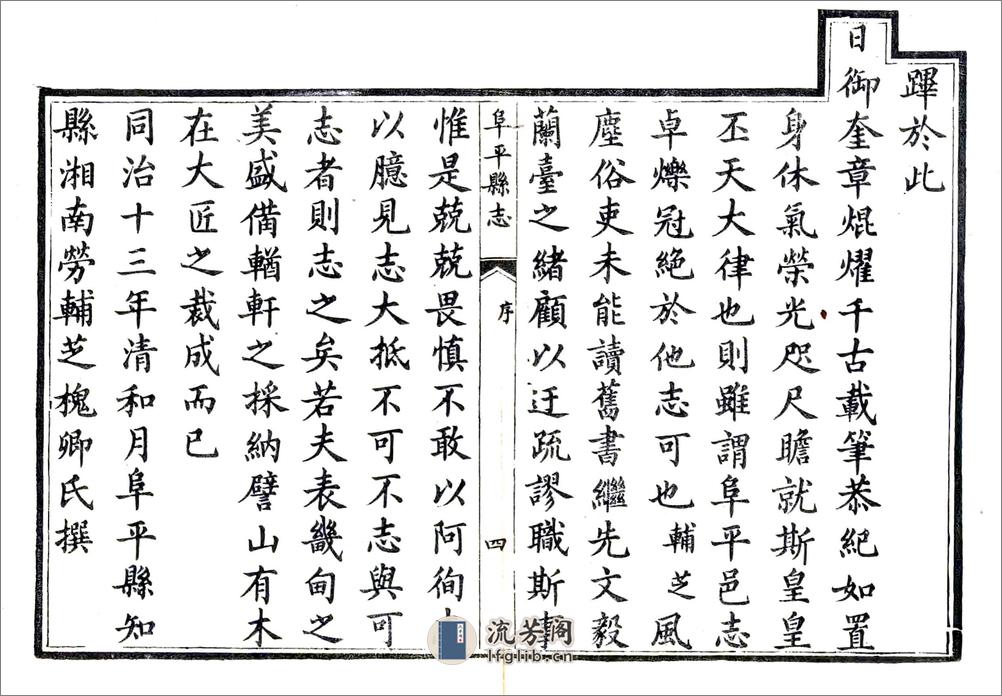 蹕於此
日御奎章焜燿千古載筆恭紀如置
身休氣榮光咫尺瞻就斯皇皇
丕天大律也則雖謂阜平邑志
卓爍冠絶於他志可也輔芝風
塵俗吏未能讀舊書繼先文毅
蘭臺之緒顧以迂疏謬職斯事
阜平縣志
序
四
惟是兢兢畏慎不敢以阿徇
以臆見志大抵不可不志與可
志者則志之矣若夫表畿甸之
美盛備輶軒之採納譬山有木
在大匠之裁成而已
同治十三年清和月阜平縣知
縣湘南勞輔芝槐卿氏撰
流芳閣
lfglib.cn